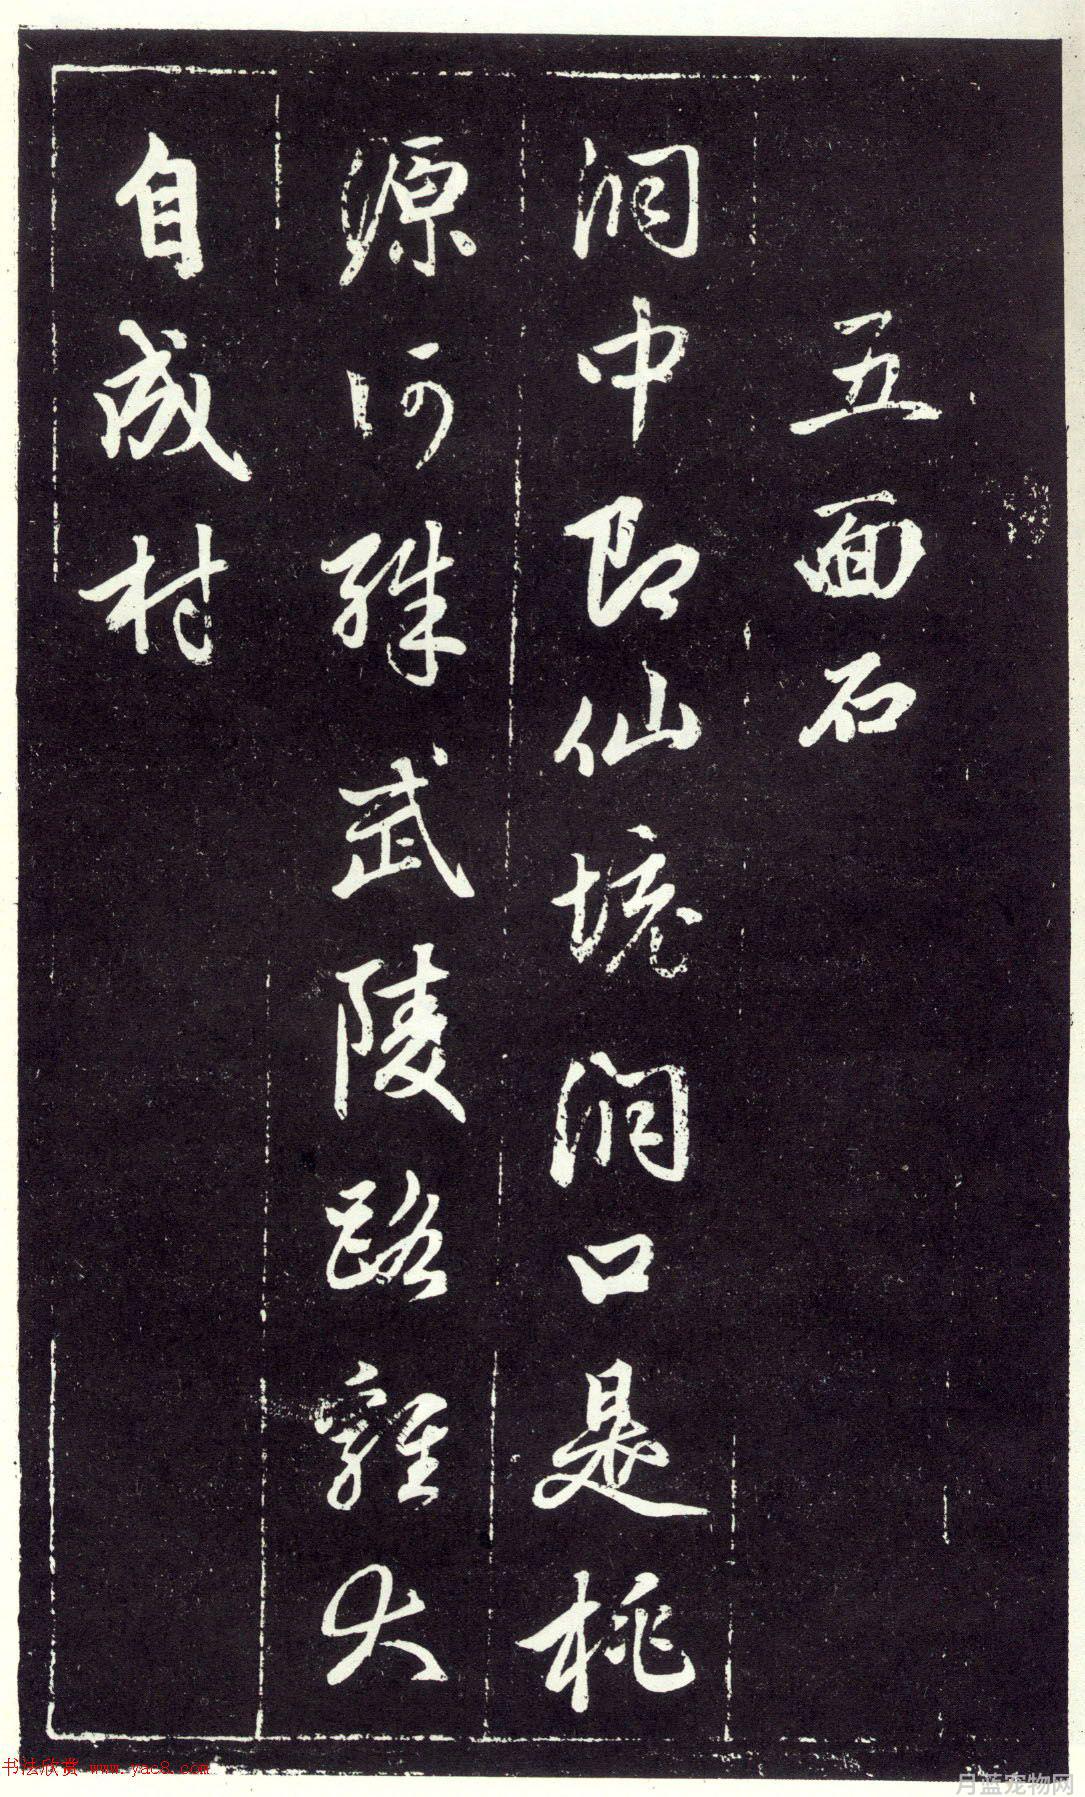 五面石
洞中即仙境洞口是桃
源何殊武陵路雞犬
自成村
书法欣赏 www.yac8.com
月蓝宠物网